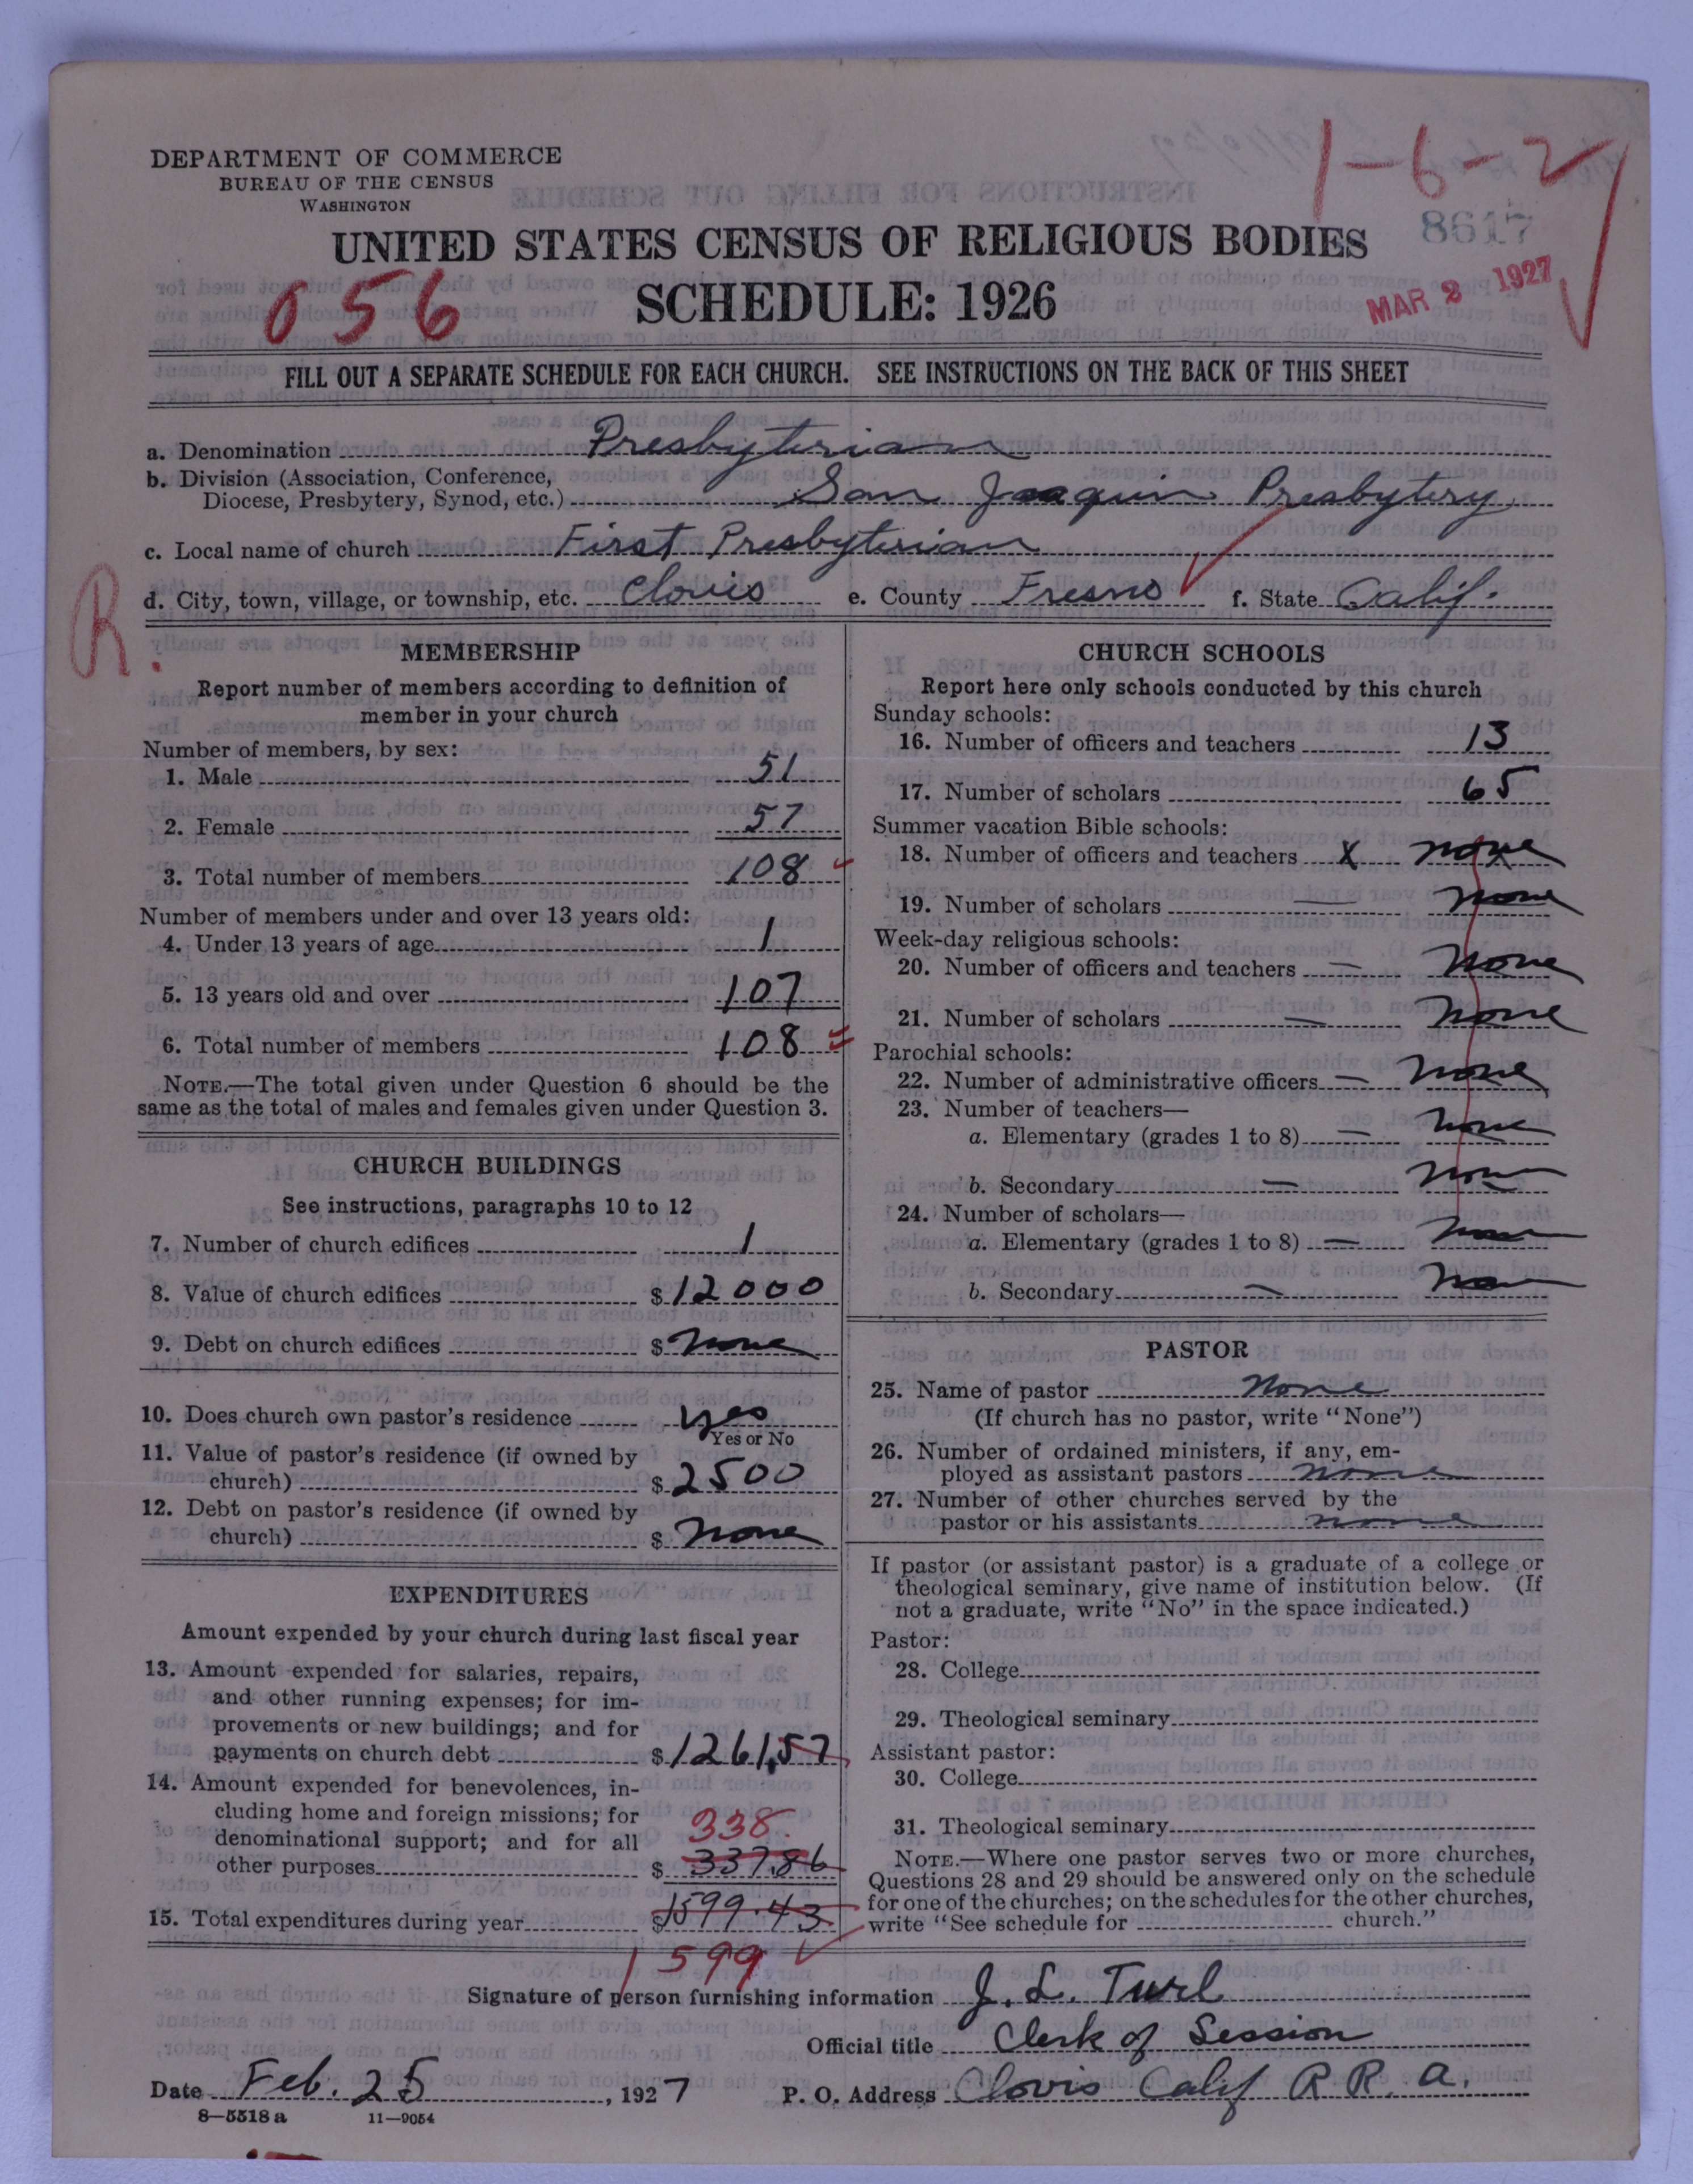 DEPARTMENT OF COMMERCE
BUREAU OF THE CENSUS
WASHINGTON
1-6-2
8617
UNITED STATES CENSUS OF RELIGIOUS BODIES
056
SCHEDULE: 1926
MAR 2 1927
FILL OUT A SEPARATE SCHEDULE FOR EACH CHURCH. SEE INSTRUCTIONS ON THE BACK OF THIS SHEET
a. Denomination Presbyterian
b. Division (Association, Conference,
Diocese, Presbytery, Synod, etc.) San Joaquin Presbytery
c. Local name of church First Presbyterian
d. City, town, village, or township, etc. Clovis e. County Fresno f. State Calif.
R.
MEMBERSHIP
Report number of members according to definition of
member in your church
Number of members, by sex:
1. Male 51
2. Female 57
3. Total number of members 108
Number of members under and over 13 years old:
4. Under 13 years of age 1
5. 13 years old and over 107
6. Total number of members 108
NOTE.—The total given under Question 6 should be the
same as the total of males and females given under Question 3.
CHURCH BUILDINGS
See instructions, paragraphs 10 to 12
7. Number of church edifices 1
8. Value of church edifices $12000
9. Debt on church edifices $ none
10. Does church own pastor's residence yes
Yes or No
11. Value of pastor's residence (if owned by
church) $2500
12. Debt on pastor's residence (if owned by
church) $ none
EXPENDITURES
Amount expended by your church during last fiscal year
13. Amount expended for salaries, repairs,
and other running expenses; for im-
provements or new buildings; and for
payments on church debt $1261,57
14. Amount expended for benevolences, in-
cluding home and foreign missions; for
338.
denominational support; and for all
other purposes $ 337.86
15. Total expenditures during year $1599.43
1599
CHURCH SCHOOLS
Report here only schools conducted by this church
Sunday schools:
16. Number of officers and teachers 13
17. Number of scholars 65
Summer vacation Bible schools:
18. Number of officers and teachers x none
19. Number of scholars — none
Week-day religious schools:
20. Number of officers and teachers — none
21. Number of scholars — none
Parochial schools:
22. Number of administrative officers — none
23. Number of teachers—
a. Elementary (grades 1 to 8) — none
b. Secondary — none
24. Number of scholars—
a. Elementary (grades 1 to 8) — none
b. Secondary — none
PASTOR
25. Name of pastor None
(If church has no pastor, write "None")
26. Number of ordained ministers, if any, em-
ployed as assistant pastors none
27. Number of other churches served by the
pastor or his assistants none
If pastor (or assistant pastor) is a graduate of a college or
theological seminary, give name of institution below. (If
not a graduate, write "No" in the space indicated.)
Pastor:
28. College
29. Theological seminary
Assistant pastor:
30. College
31. Theological seminary
NOTE.—Where one pastor serves two or more churches,
Questions 28 and 29 should be answered only on the schedule
for one of the churches; on the schedules for the other churches,
write "See schedule for church."
Signature of person furnishing information J. L. Turl
Official title Clerk of Session
Date Feb. 25, 1927 P. O. Address Clovis Calif R R. A.
8—5518 a 11—9054